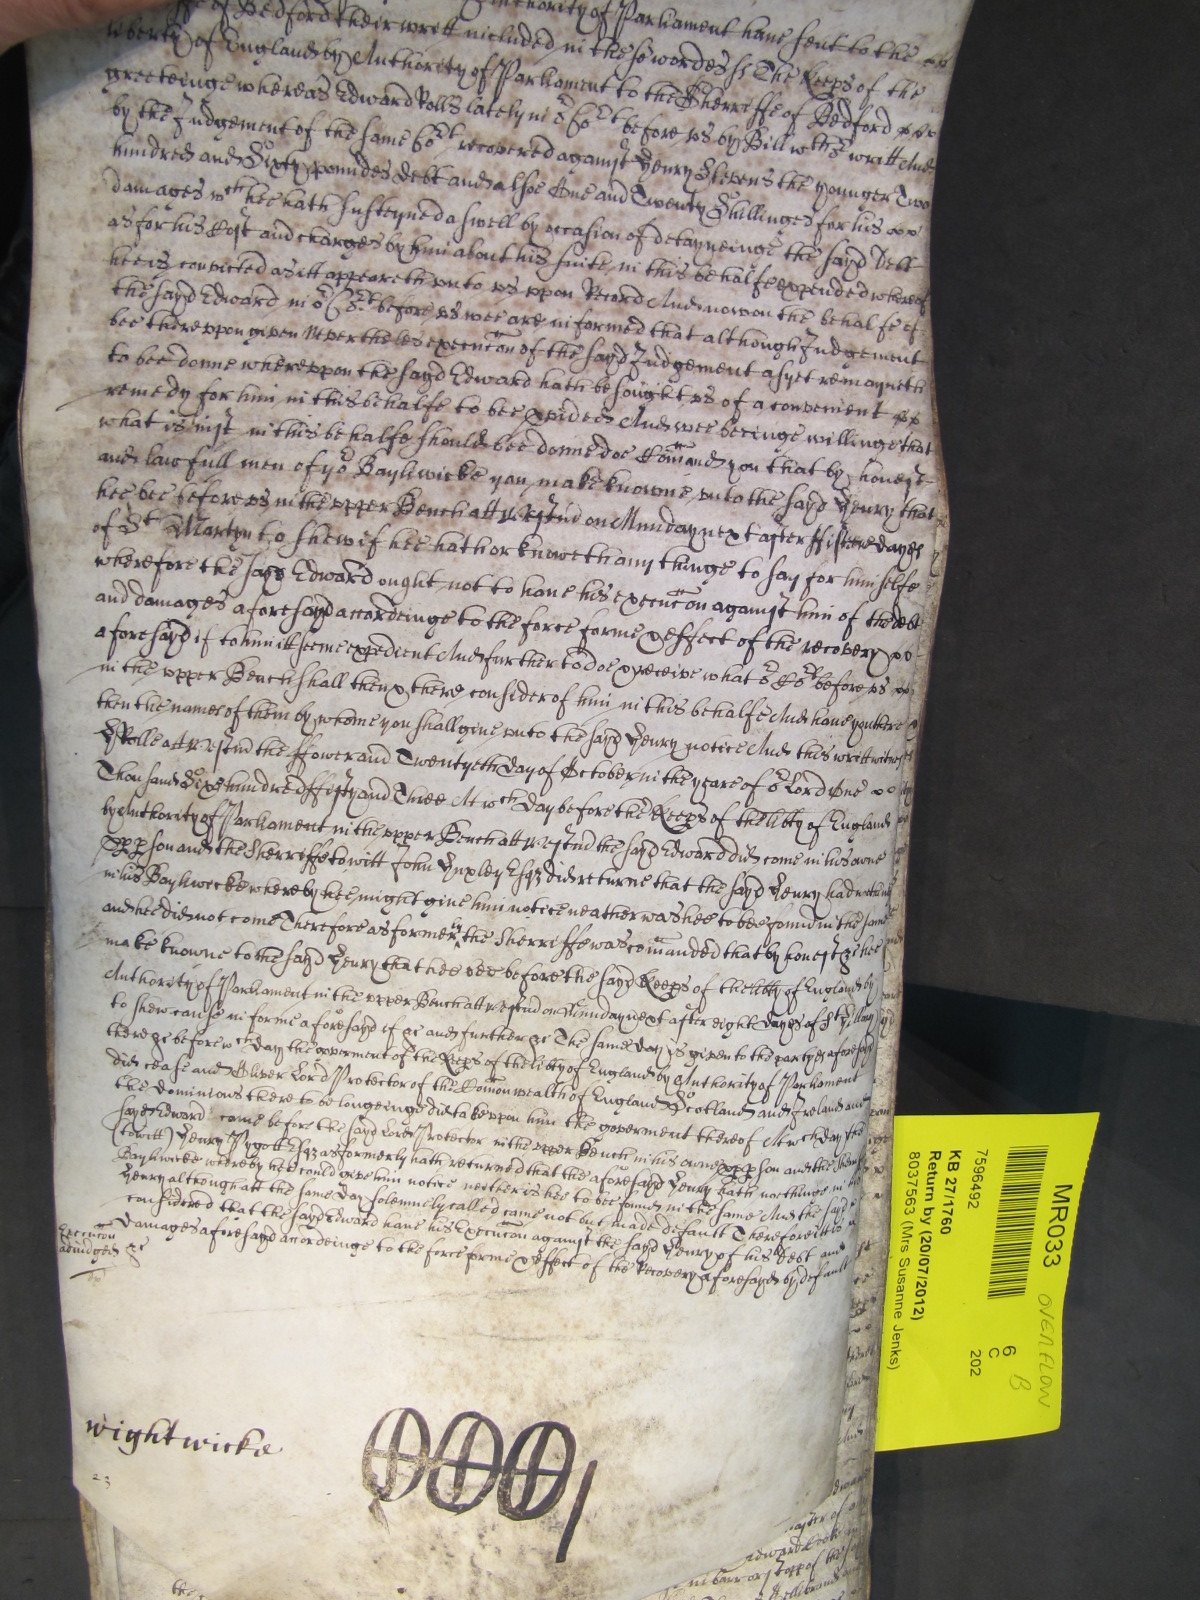 Authority of Parliament have sent to the
of Bedford their writt included in these wordes ss The Keeps of the
liberty of England by Authority of Parliament to the Sherriffe of Bedford
greeteinge whereas Edward Rolls lately in or Cort before us by Bill wthout writt And
by the Judgement of the same Cort recovered against Henry Stevens the younger Two
hundred and Sixty poundes debt and alsoe One and Twenty Shillinges for his
damages wch hee hath susteyned aswell by occasion of detayneinge the sayd debt
as for his Cost and charges by him about his suite in this behalfe expended whereof
hee is convicted as itt appeareth unto us uppon Record And now on the behalfe of
the sayd Edward in or Cort before us wee are informed that although Judgement
bee thereuppon given neverthelesse execucon of the sayd Judgement as yet remayneth
to bee donne whereuppon the sayd Edward hath besought us of a convenient
remedy for him in this behalfe to bee pvided And wee beeinge willinge that
what is just in this behalfe should bee donne doe Comand you that by honest
and lawfull men of yor Bayliwicke you make knowne unto the sayd Henry that
hee bee before us in the upper Bench att Westmr on Munday next after fifteene dayes
of St Martyn to shew if hee hath or knoweth any thinge to say for himselfe
wherefore the sayd Edward ought not to have his execucon against him of the debt
and damages aforesayd accordeinge to the force forme & effect of the recovery
aforesayd if to him itt seeme expedient And further to doe & receive what or Cort before us
in the upper Bench shall then & there consider of him in this behalfe And have you there
then the names of them by whome you shall give unto the sayd Henry notice And this writt witnes
H Rolle att Westmr the ffower and Twentyeth day of October in the yeare of or Lord One
Thousand Sixe hundred ffifty and Three Att wch day before the Keeps of the libty of England
by Authority of Parliament in the upper Bench att Westmr the sayd Edward did come in his owne
pp pson and the Sherriffe to witt John Huxley Esqz did returne that the sayd Henry had nothing
in his Bayliwicke whereby hee might give him notice neather was hee to bee found in the same
and hee did not come Therefore as formerly the Sherriffe was comanded that by honest &c hee
make knowne to the sayd Henry that hee bee before the sayd Keeps of the libty of England by
Authority of Parliament in the upper Bench att Westmr on Munday next after eight dayes of St Hillary
to shew cause in forme aforesayd if &c and further &c The same day is given to the partyes aforesayd
there &c before wch day the goverment of the Keeps of the libty of England by Authority of Parliament
did cease and Oliver Lord Protector of the Comonwealth of England Scotland and Ireland and
the dominions there to belongeinge did take uppon him the goverment thereof Att wch day the
sayd Edward come before the sayd Lord Protector in the upper Bench in his owne pp pson and the Sherriffe
(to witt) Henry Pygott Esqz as formerly hath returned that the aforesayd Henry hath nothinge in his
Bayliwicke whereby hee could give him notice neither is hee to bee found in the same And the sayd
Henry although att the same day solemnely called came not but made default Therefore itt is
considered that the sayd Edward have his Execucon against the sayd Henry of his debt and
damages aforesayd accordeinge to the force forme & effect of the Recovery aforesayd by default
&c
Execucon
adiudged
wightwicke
23
MR033
OVERFLOW
6
C
B
202
7596492
KB 27/1760
Return by (20/07/2012)
8037563 (Mrs Susanne Jenks)